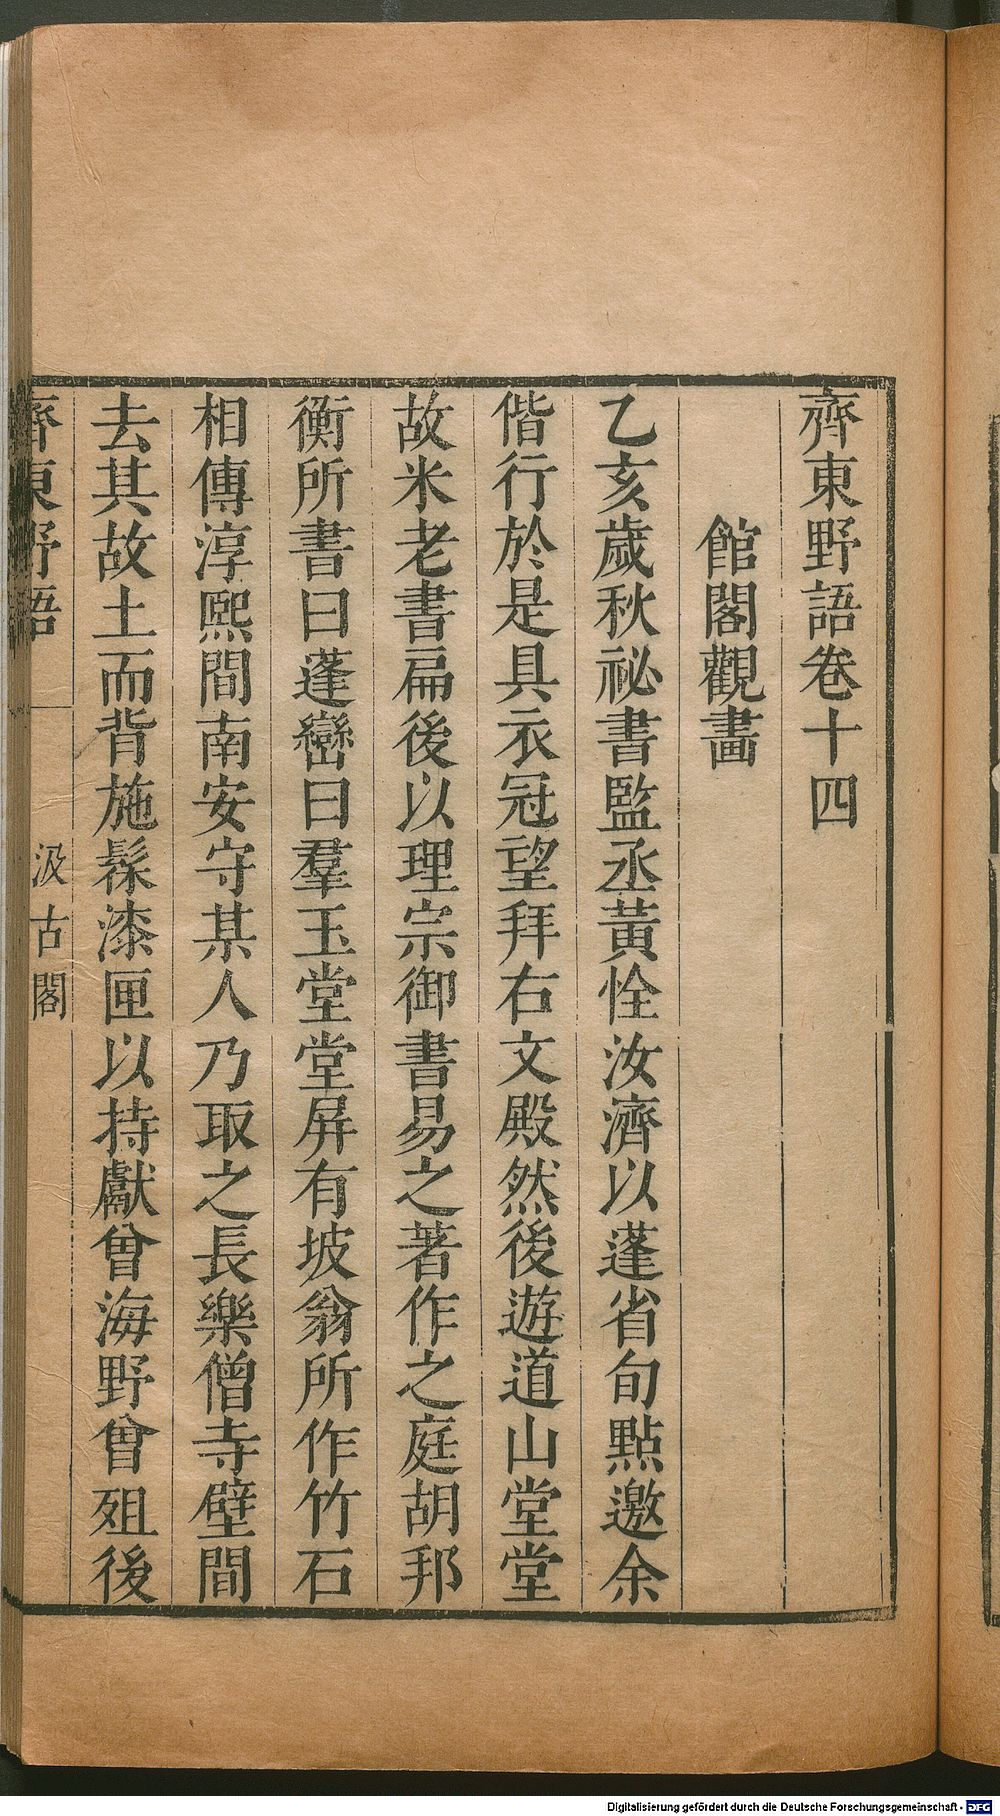 齊東野語卷十四
館閣觀畫
乙亥歲秋祕書監丞黃恮汝濟以蓬省旬點邀余
偕行於是具衣冠望拜右文殿然後遊道山堂堂
故米老書扁後以理宗御書易之著作之庭胡邦
衡所書曰蓬巒曰羣玉堂堂屏有坡翁所作竹石
相傳淳熙間南安守某人乃取之長樂僧寺壁間
去其故土而背施髹漆匣以持獻曾海野曾殂後
齊東野語
汲古閣
Digitalisierung gefördert durch die Deutsche Forschungsgemeinschaft - DFG